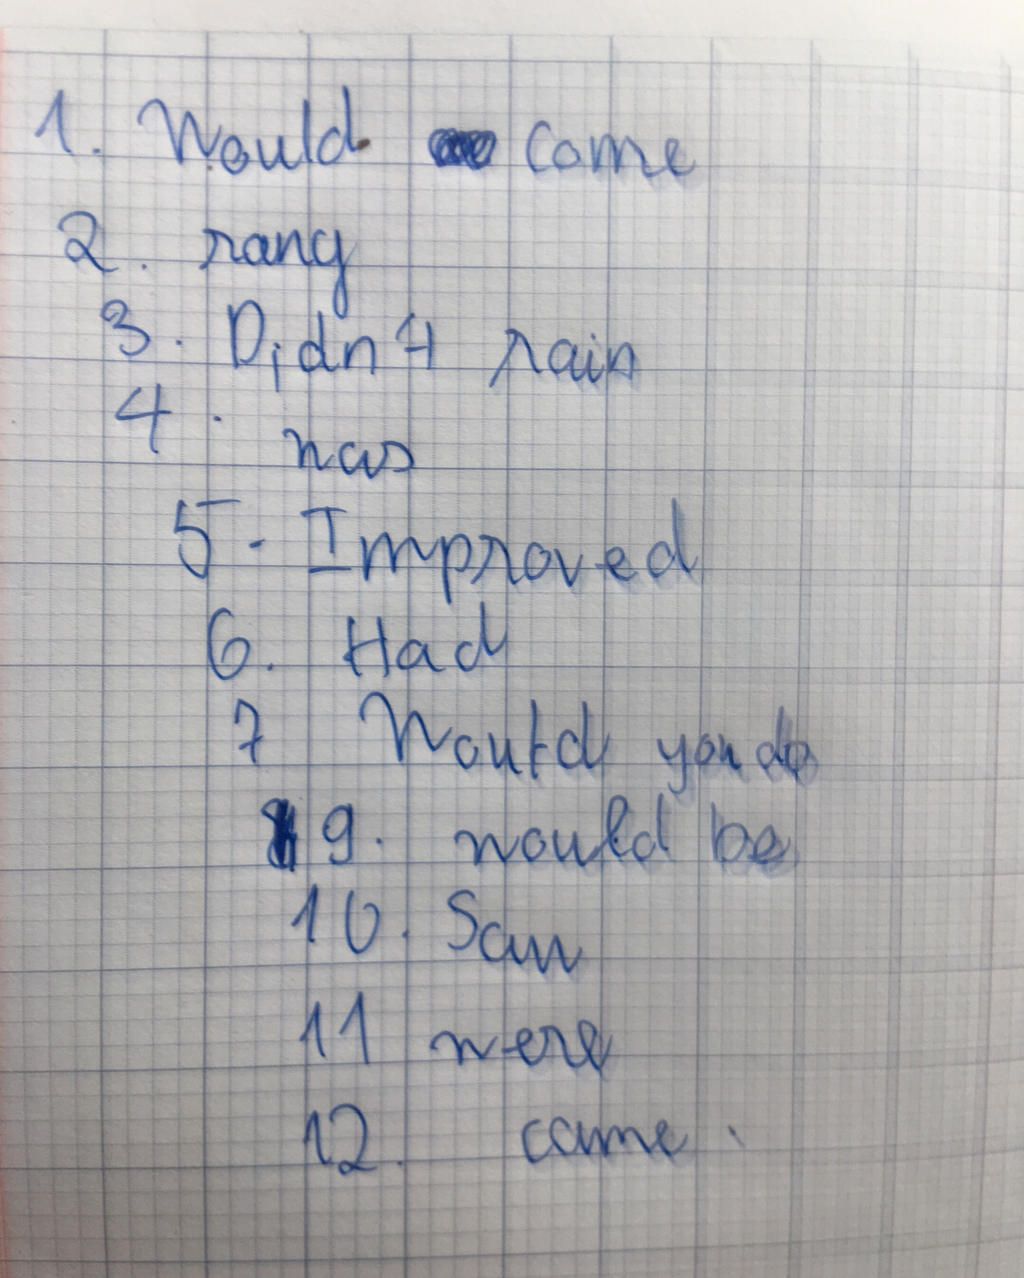 1. Would come
2. rang
3. Didn't rain
4. was
5. Improved
6. Had
7 Would you do
9. would be
10. Saw
11 were
12. came.